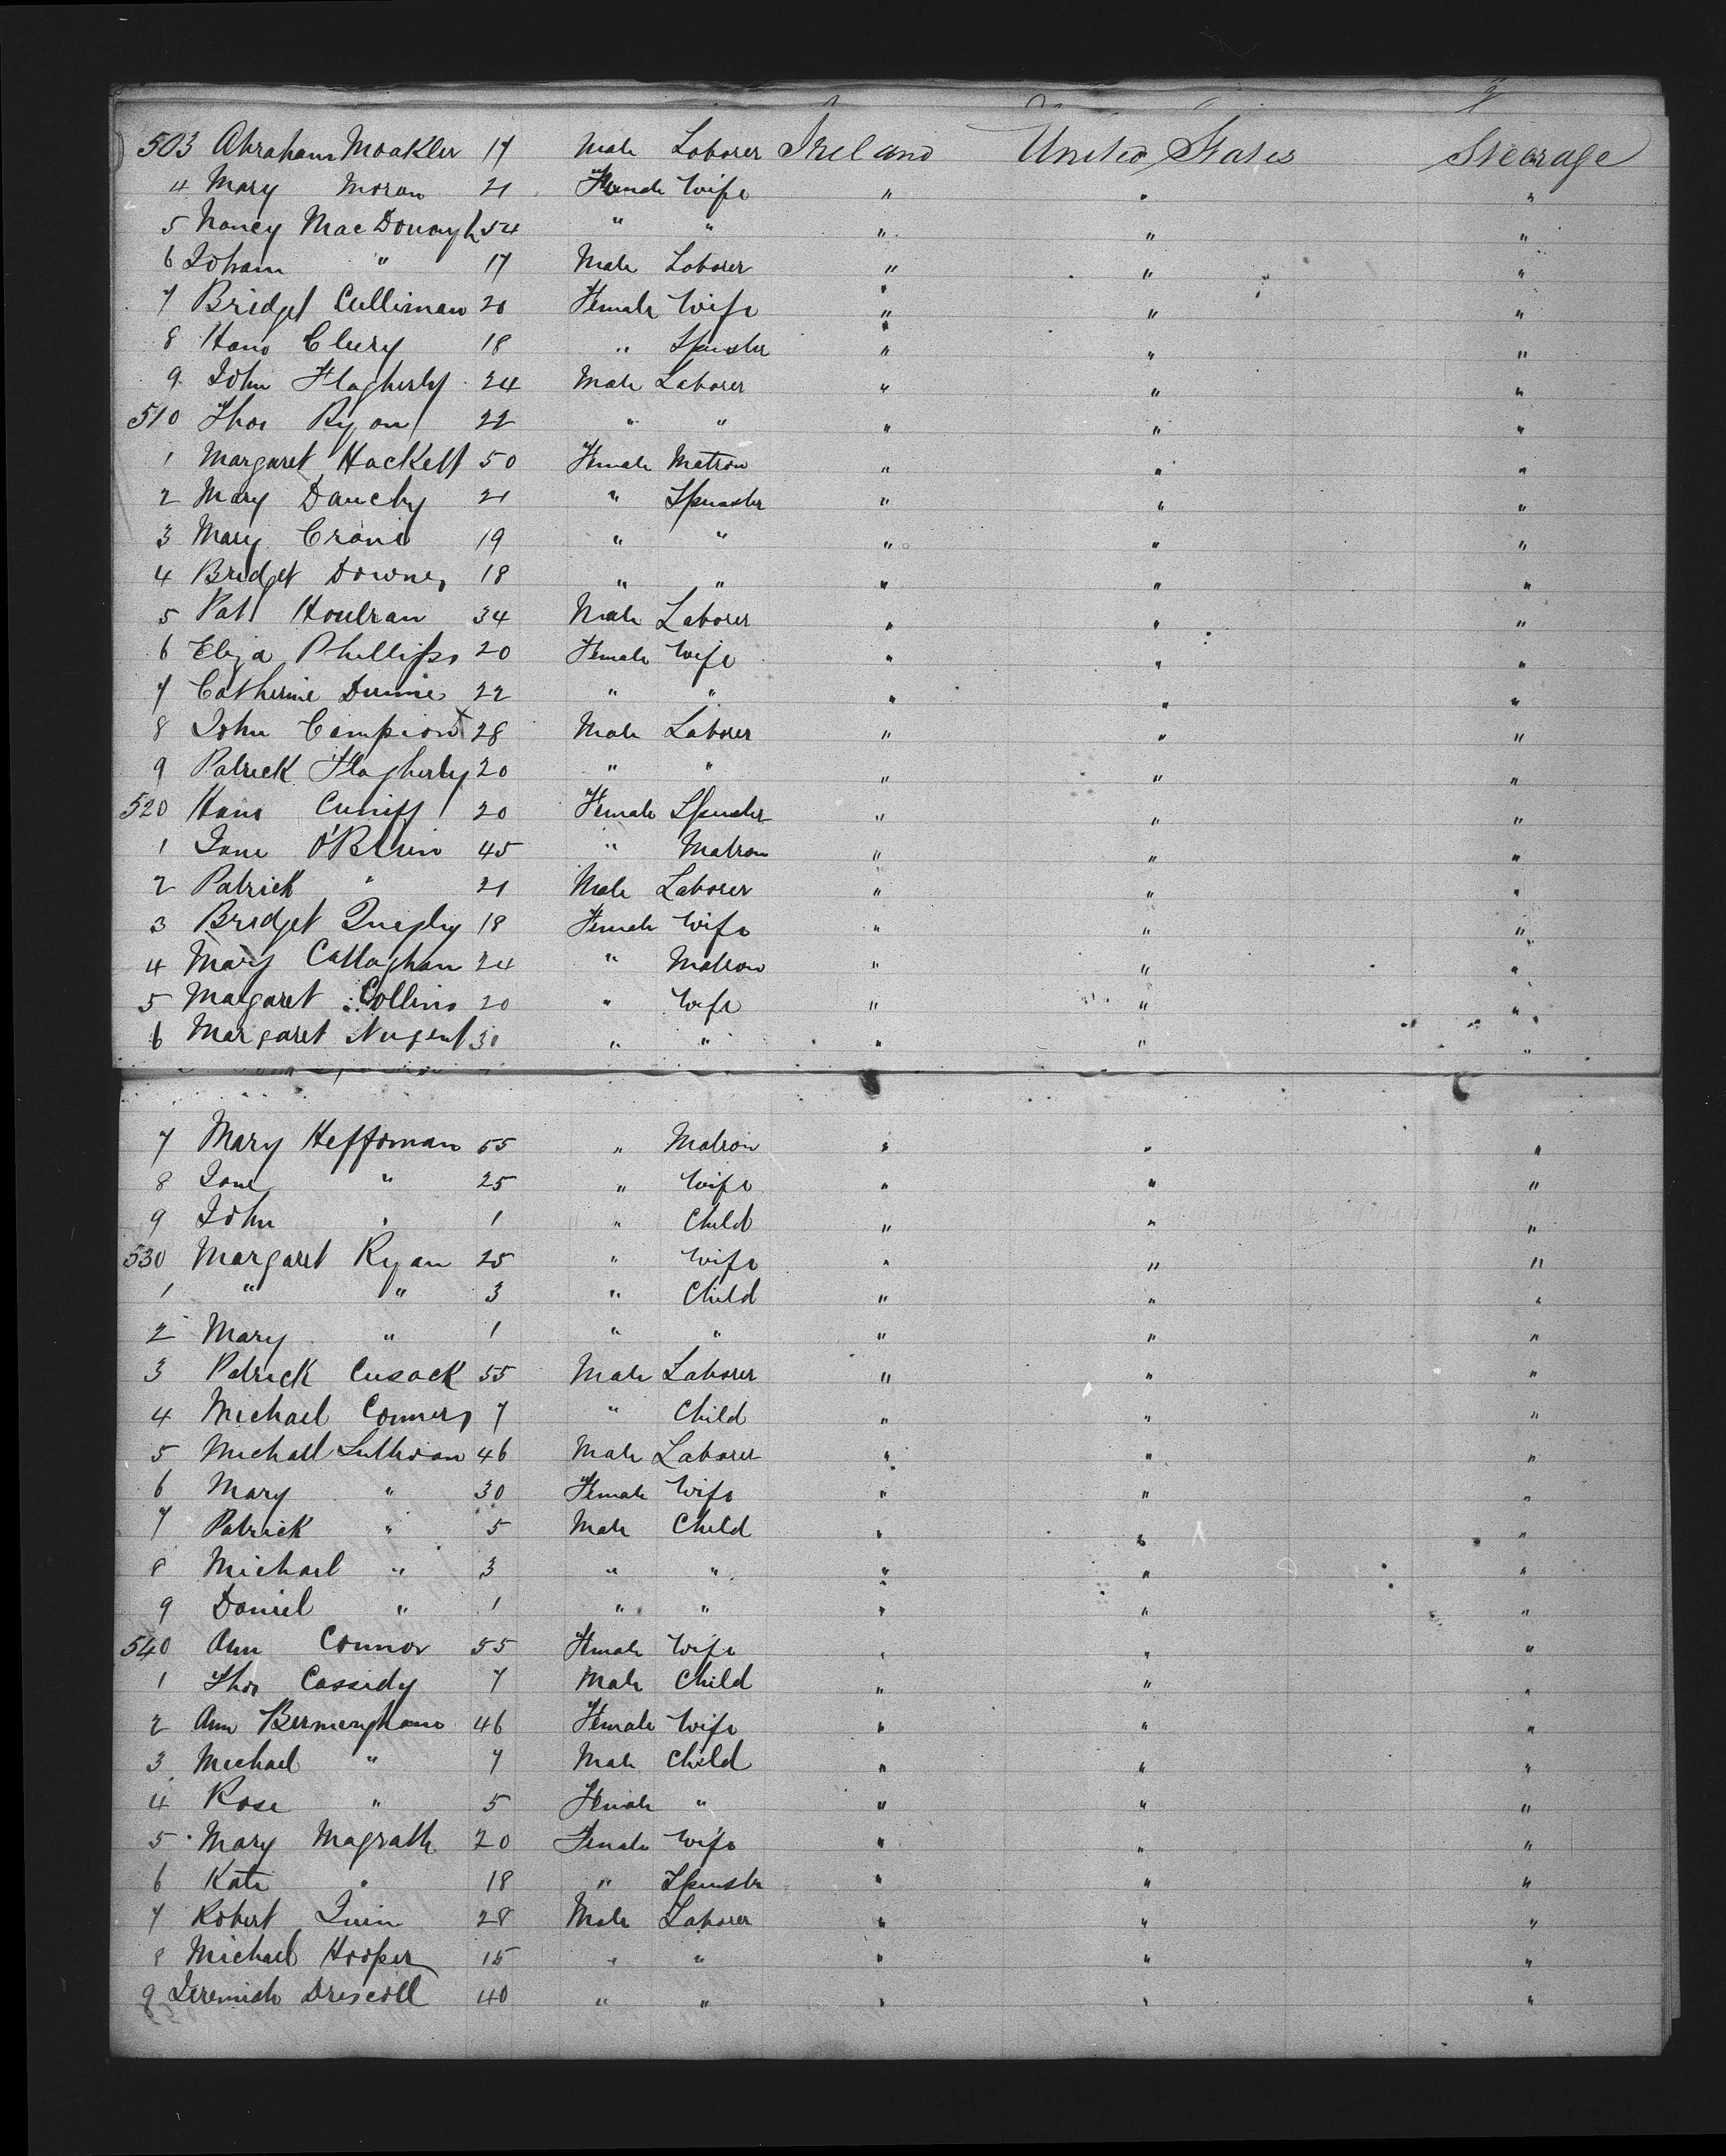 503 Abraham Moakler 17 Male Laborer Ireland United States Steerage
4 Mary Moran 21 Female Wife " " "
5 Nancy MacDonaugh 54 " " " " "
6 Johann " 17 Male Laborer " " "
7 Bridget Culliman 20 Female Wife " " "
8 Hano Cleery 18 " Spinster " " "
9 John Flagherty 24 Male Laborer " " "
510 Thos Ryan 22 " " " " "
1 Margaret Hackett 50 Female Matron " " "
2 Mary 21 " Spinster " " "
3 Mary Crane 19 " " " " "
4 Bridget Downes 18 " " " " "
5 Pat Houlran 34 Male Laborer " " "
6 Eliza Phillips 20 Female Wife " " "
7 Catherine Dunne 22 " " " " "
8 John Campion X 28 Male Laborer " " "
9 Patrick Flagherty 20 " " " " "
520 Hano Cuniff 20 Female Spinster " " "
1 Jane O'Brien 45 " Matron " " "
2 Patrick " 21 Male Laborer " " "
3 Bridget Quigley 18 Female Wife " " "
4 Mary Callaghan 24 " Matron " " "
5 Margaret Collins 20 " Wife " " "
6 Margaret Nugent 30 " " " " "
7 Mary Heffornan 55 " Matron " " "
8 Jane " 25 " Wife " " "
9 John " 1 " Child " " "
530 Margaret Ryan 25 " Wife " " "
1 " " 3 " Child " " "
2 Mary " 1 " " " " "
3 Patrick Cusack 55 Male Laborer " " "
4 Michael Conners 7 " Child " " "
5 Michael Sullivan 46 Male Laborer " " "
6 Mary " 30 Female Wife " " "
7 Patrick " 5 Male Child " " "
8 Michael " 3 " " " " "
9 Daniel " 1 " " " " "
540 Ann Connor 55 Female Wife " " "
1 Thos Cassidy 7 Male Child " " "
2 Ann Bermengham 46 Female Wife " " "
3 Michael " 7 Male Child " " "
4 Rose " 5 Female " " " "
5 Mary Magrath 20 Female Wife " " "
6 Kate " 18 " Spinster " " "
7 Robert Quin 28 Male Laborer " " "
8 Michael Hooper 15 " " " " "
9 Jeremiah Driscoll 40 " " " " "